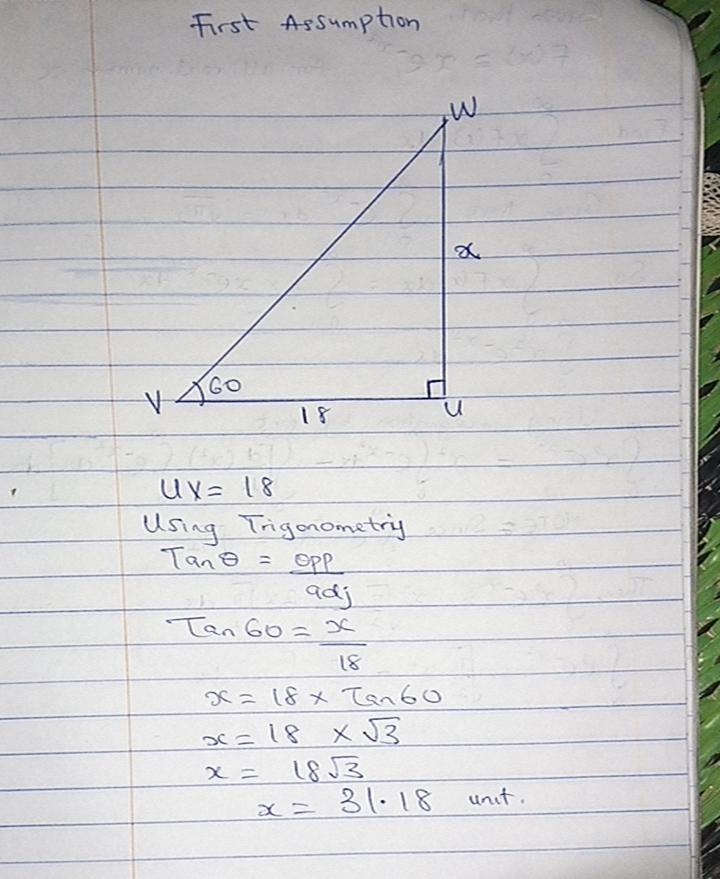 First Assumption
W
x
V 60
18
U
UV = 18
Using Trigonometry
Tan θ = opp
adj
Tan 60 = x
18
x = 18 × Tan 60
x = 18 × √3
x = 18√3
x = 31.18 unit.